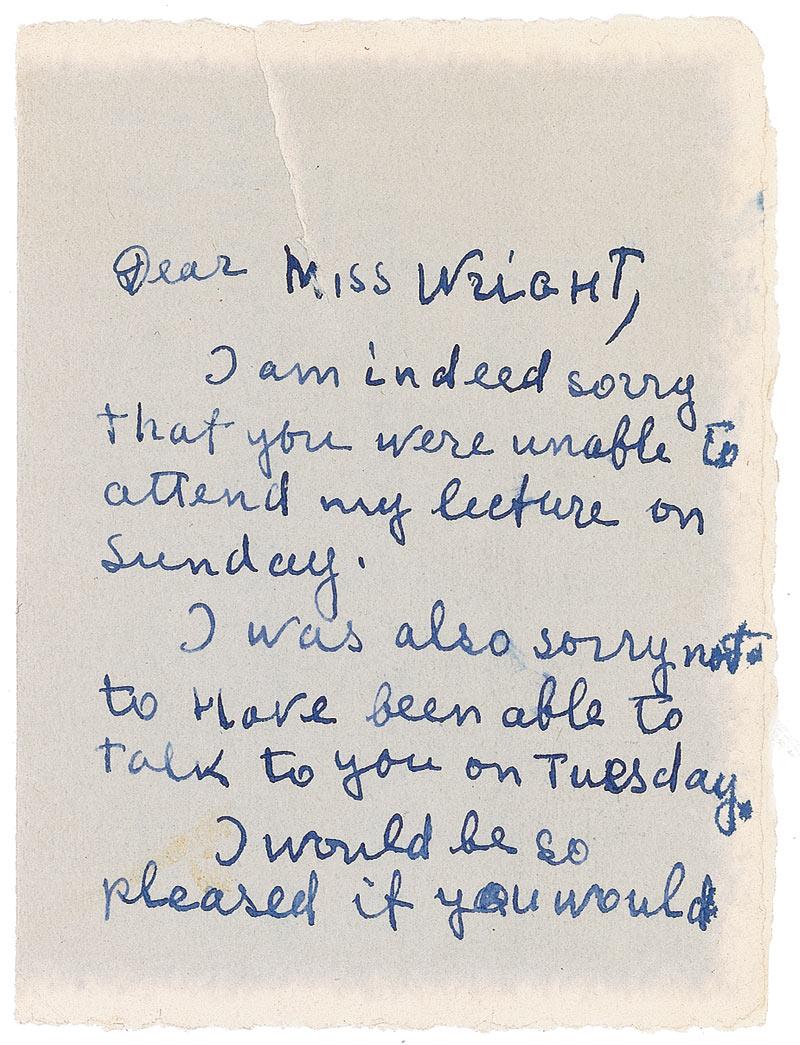 Dear Miss Wright,
I am indeed sorry
that you were unable to
attend my lecture on
Sunday.
I was also sorry not
to Have been able to
talk to you on Tuesday.
I would be so
pleased if you would